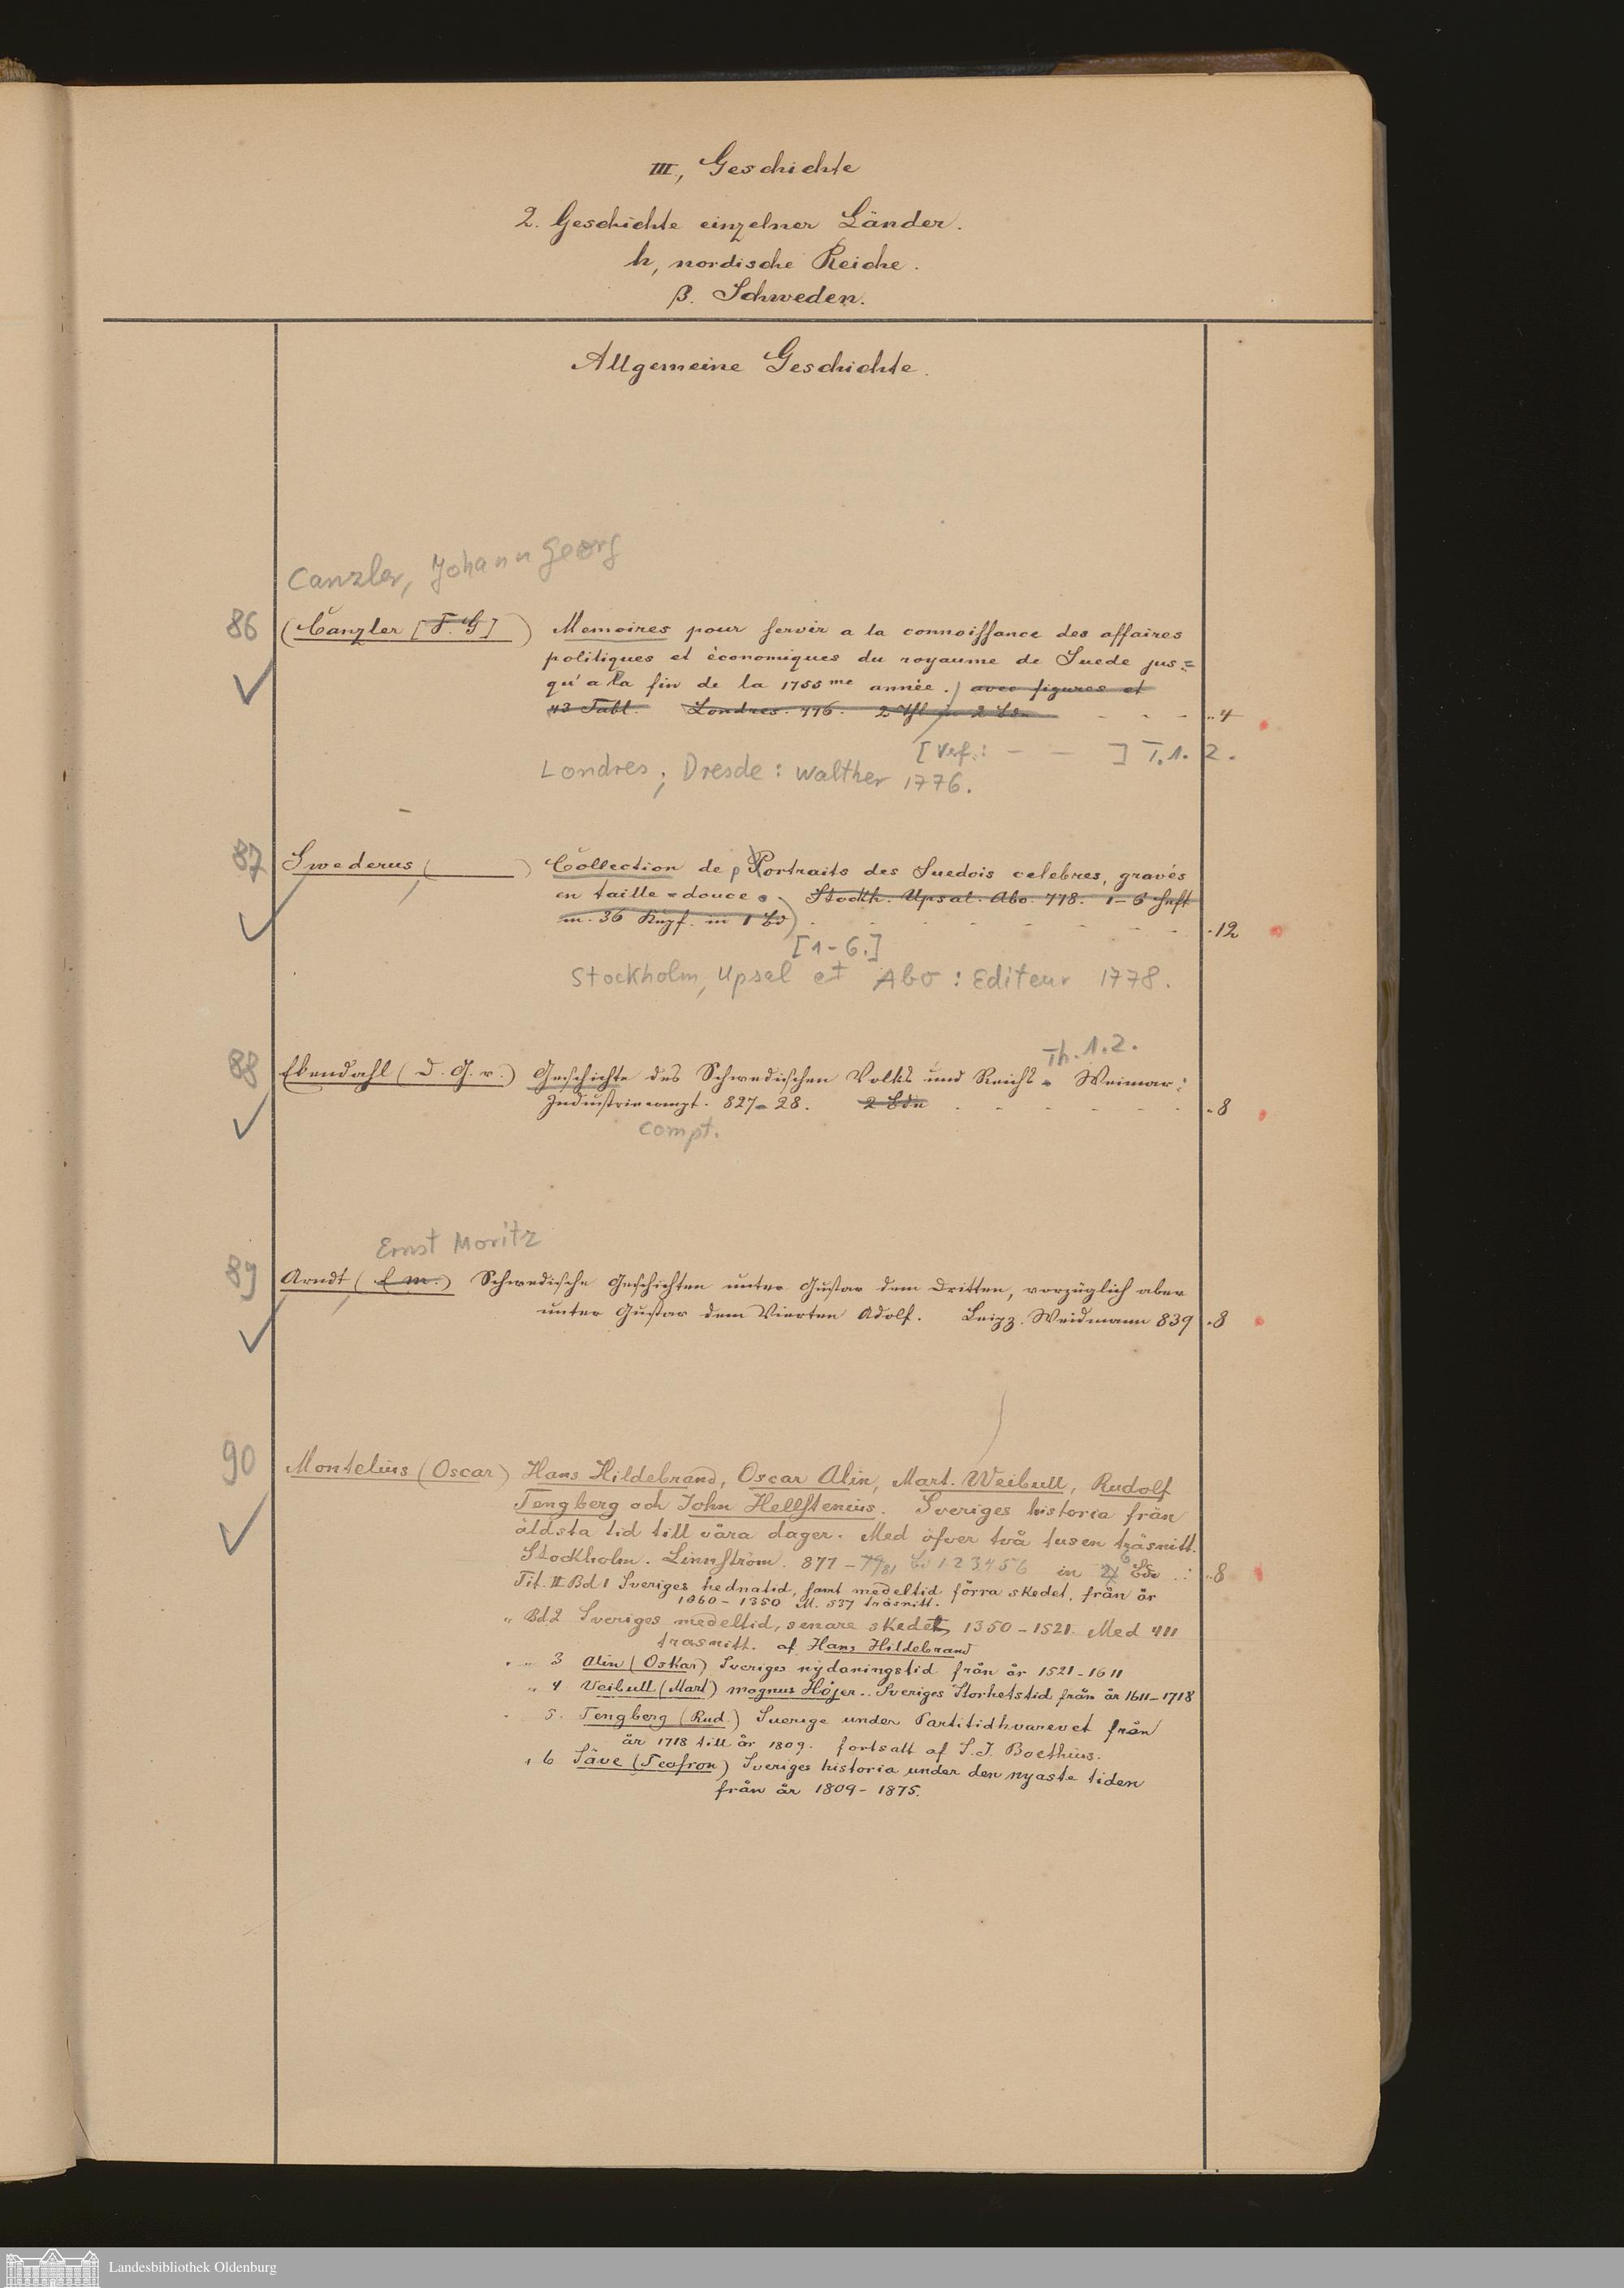 III, Geschichte
2. Geschichte einzelner Länder.
h, nordische Reiche.
β. Schweden.
Allgemeine Geschichte.
Canzler, Johann Georg
86 (Canzler [F. G]) Memoires pour servir a la connoissance des affaires
politiques et èconomiques du royaume de Suede jus=
qu'a la fin de la 1755me année.) avec figures et
43 Tabl. Londres. 776. 2 Thl in 2 Bdn - - - ..4
[Verf.: - - ] T. 1. 2.
Londres; Dresde: Walther 1776.
87 Swederus ( ) Collection de pPortraits des Suedois celebres, gravés
en taille=douce. Stockh. Upsal. Abo. 778. 1-6 Heft
m. 36 Kupf. in 1 Bd) - - - - - - - .12
[1-6.]
Stockholm, Upsal et Abo: Editeur 1778.
Th. 1. 2.
88 Ekendahl (D. G. v.) Geschichte des Schwedischen Volks und Reichs. Weimar:
Industriecompt. 827-28. 2 Bdn - - - - - - .8
Compt.
Ernst Moritz
89 Arndt (E m.) Schwedische Geschichten unter Gustav dem Dritten, vorzüglich aber
unter Gustav dem Vierten Adolf. Leipz. Weidmann 839 .8
90 Montelius (Oscar) Hans Hildebrand, Oscar Alin, Mart. Weibull, Rudolf
Tengberg och John Hellstenius. Sveriges historia från
äldsta tid till våra dager. Med öfver två tusen träsnitt.
Stockholm. Linnström. 877-79/81 Bd 1 2 3 4 5 6 in 6 Bde .: ..8
Tit. II Bd 1 Sveriges hednatid, samt medeltid förra skedet, från år
1060-1350 M. 537 träsnitt.
" Bd 2 Sveriges medeltid, senare skedet, 1350-1521. Med 411
trasnitt. af Hans Hildebrand
" " 3 Alin (Oskar) Sveriges nydaningstid från år 1521-1611
" 4 Veibull (Mart) magnus Höjer.. Sveriges Storhetstid från år 1611-1718
" 5. Tengberg (Rud.) Sverige under Partitidhvarevet från
är 1718 till år 1809. fortsatt af S. J. Boethius.
" 6 Säve (Teofron) Sveriges historia under den nyaste tiden
från är 1809-1875.
Landesbibliothek Oldenburg